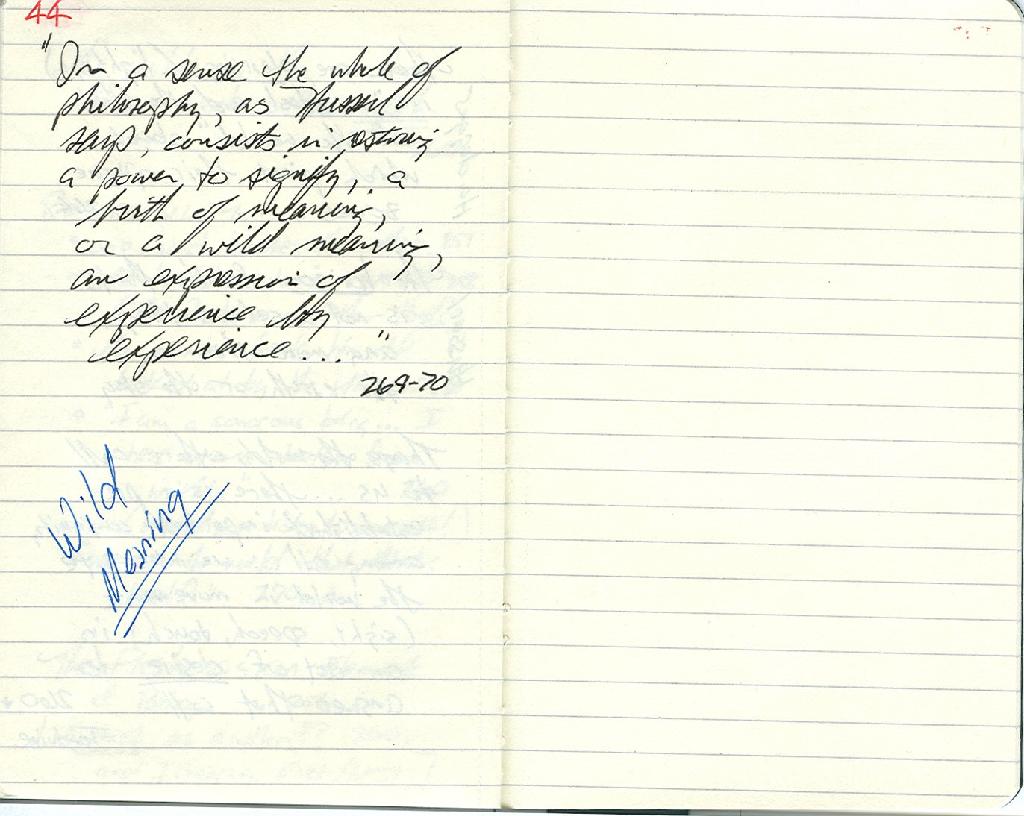 44
"In a sense the whole of
philosophy, as Husserl
says, consists in restoring
a power to signify, a
birth of meaning,
or a wild meaning,
an expression of
experience by
experience..."
269-70
Wild
Meaning